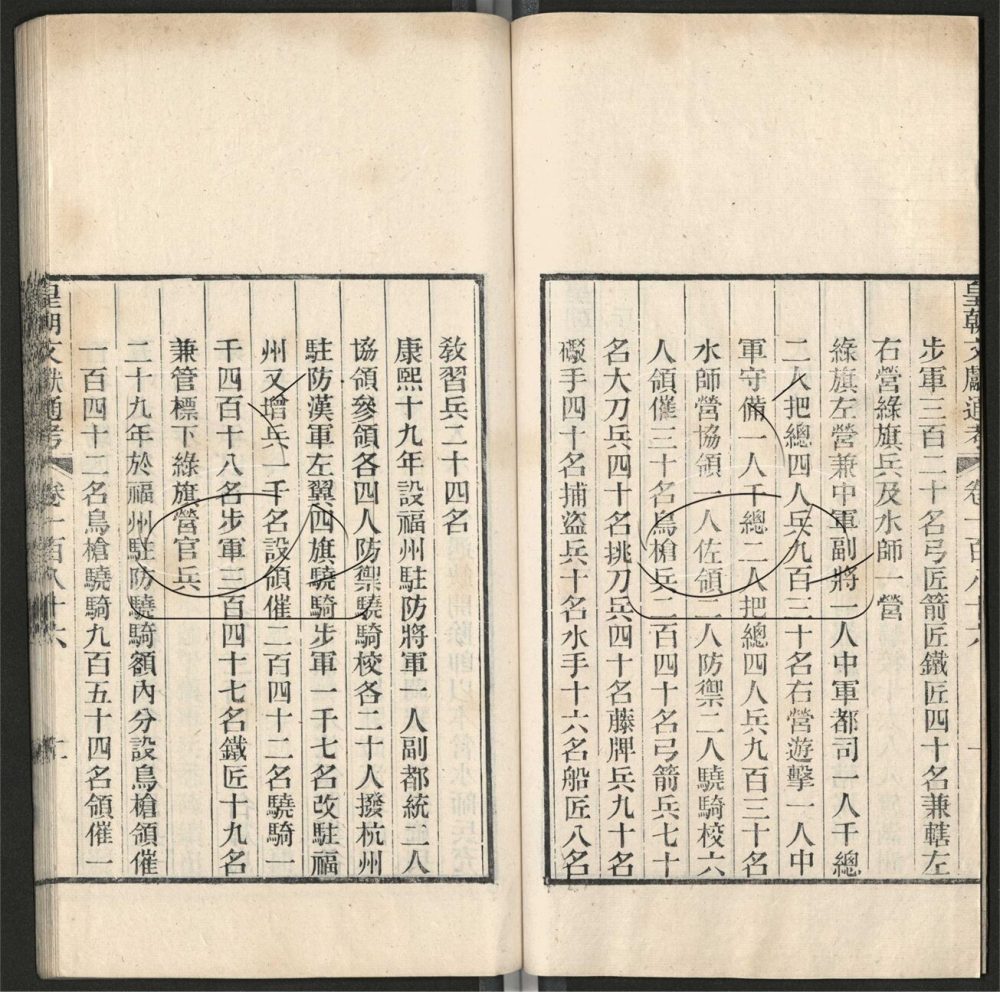 皇朝文獻通考 卷一百八十六
步軍三百二十名弓匠箭匠鐵匠四十名兼轄左
右營綠旗兵及水師一營
綠旗左營兼中軍副將一人中軍都司一人千總
二人把總四人兵九百三十名右營遊擊一人中
軍守備一人千總二人把總四人兵九百三十名
水師營協領一人佐領二人防禦二人驍騎校六
人領催三十名鳥槍兵二百四十名弓箭兵七十
名大刀兵四十名挑刀兵四十名藤牌兵九十名
礮手四十名捕盜兵十名水手十六名船匠八名
敎習兵二十四名
康熙十九年設福州駐防將軍一人副都統二人
協領參領各四人防禦驍騎校各二十人撥杭州
駐防漢軍左翼四旗驍騎步軍一千七名改駐福
州又增兵一千名設領催二百四十二名驍騎一
千四百十八名步軍三百四十七名鐵匠十九名
兼管標下綠旗營官兵
二十九年於福州駐防驍騎額內分設鳥槍領催
一百四十二名鳥槍驍騎九百五十四名領催一
皇朝文獻通考 卷一百八十六